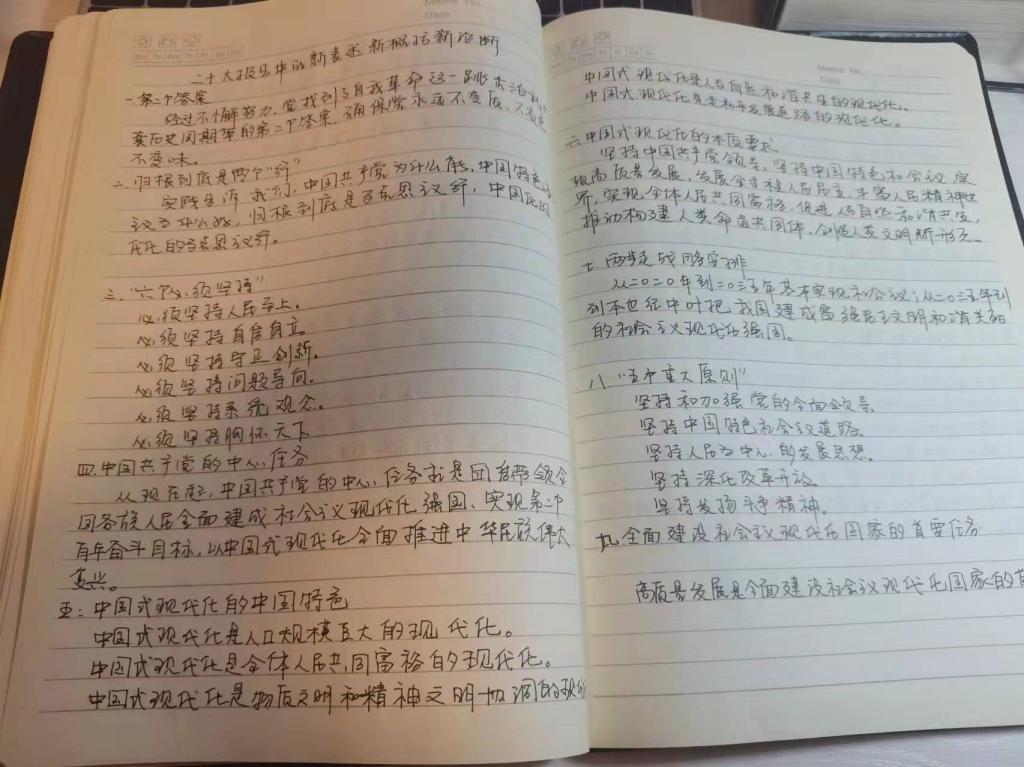 Memo No.
Date
Mo Tu We Th Fr Sa Su
二十大报告中的新表述新概括新论断
一.第二个答案
经过不懈努力,党找到了自我革命这一跳出治乱
衰历史周期率的第二个答案,确保党永远不变质、不变色
不变味。
二.归根到底是两个"行"
实践告诉我们,中国共产党为什么能,中国特色
议为什么好,归根到底是马克思议行,中国化时
代化的马克思议行。
三."六个必须坚持"
必须坚持人民至上。
必须坚持自信自立。
必须坚持守正创新。
必须坚持问题导向。
必须坚持系统观念。
必须坚持胸怀天下
四.中国共产党的中心任务
从现在起,中国共产党的中心任务就是团结带领全
国各族人民全面建成社会议现代化强国、实现第二个
百年奋斗目标,以中国式现代化全面推进中华民族伟大
复兴。
五:中国式现代化的中国特色
中国式现代化是人口规模巨大的现代化。
中国式现代化是全体人民共同富裕的现代化。
中国式现代化是物质文明和精神文明协调的现代
Memo No.
Date
Mo Tu We Th Fr Sa Su
中国式现代化是人与自然和谐共生的现代化。
中国式现代化是走和平发展道路的现代化。
六.中国式现代化的本质要求
坚持中国共产党领导,坚持中国特色社会议,实
现高质量发展,发展全过程人民民主,丰富人民精神世
界,实现全体人民共同富裕,促进人与自然和谐共生,
推动构建人类命运共同体,创造人类文明新形态。
七.两步走战略安排
从二〇二〇年到二〇三五年基本实现社会议;从二〇三五年到
到本世纪中叶把我国建成富强民主文明和谐美丽
的社会主义现代化强国。
八."五个重大原则"
坚持和加强党的全面领导
坚持中国特色社会议道路。
坚持人民为中心的发展思想。
坚持深化改革开放。
坚持发扬斗争精神。
九.全面建设社会议现代化国家的首要任务
高质量发展是全面建设社会议现代化国家的首